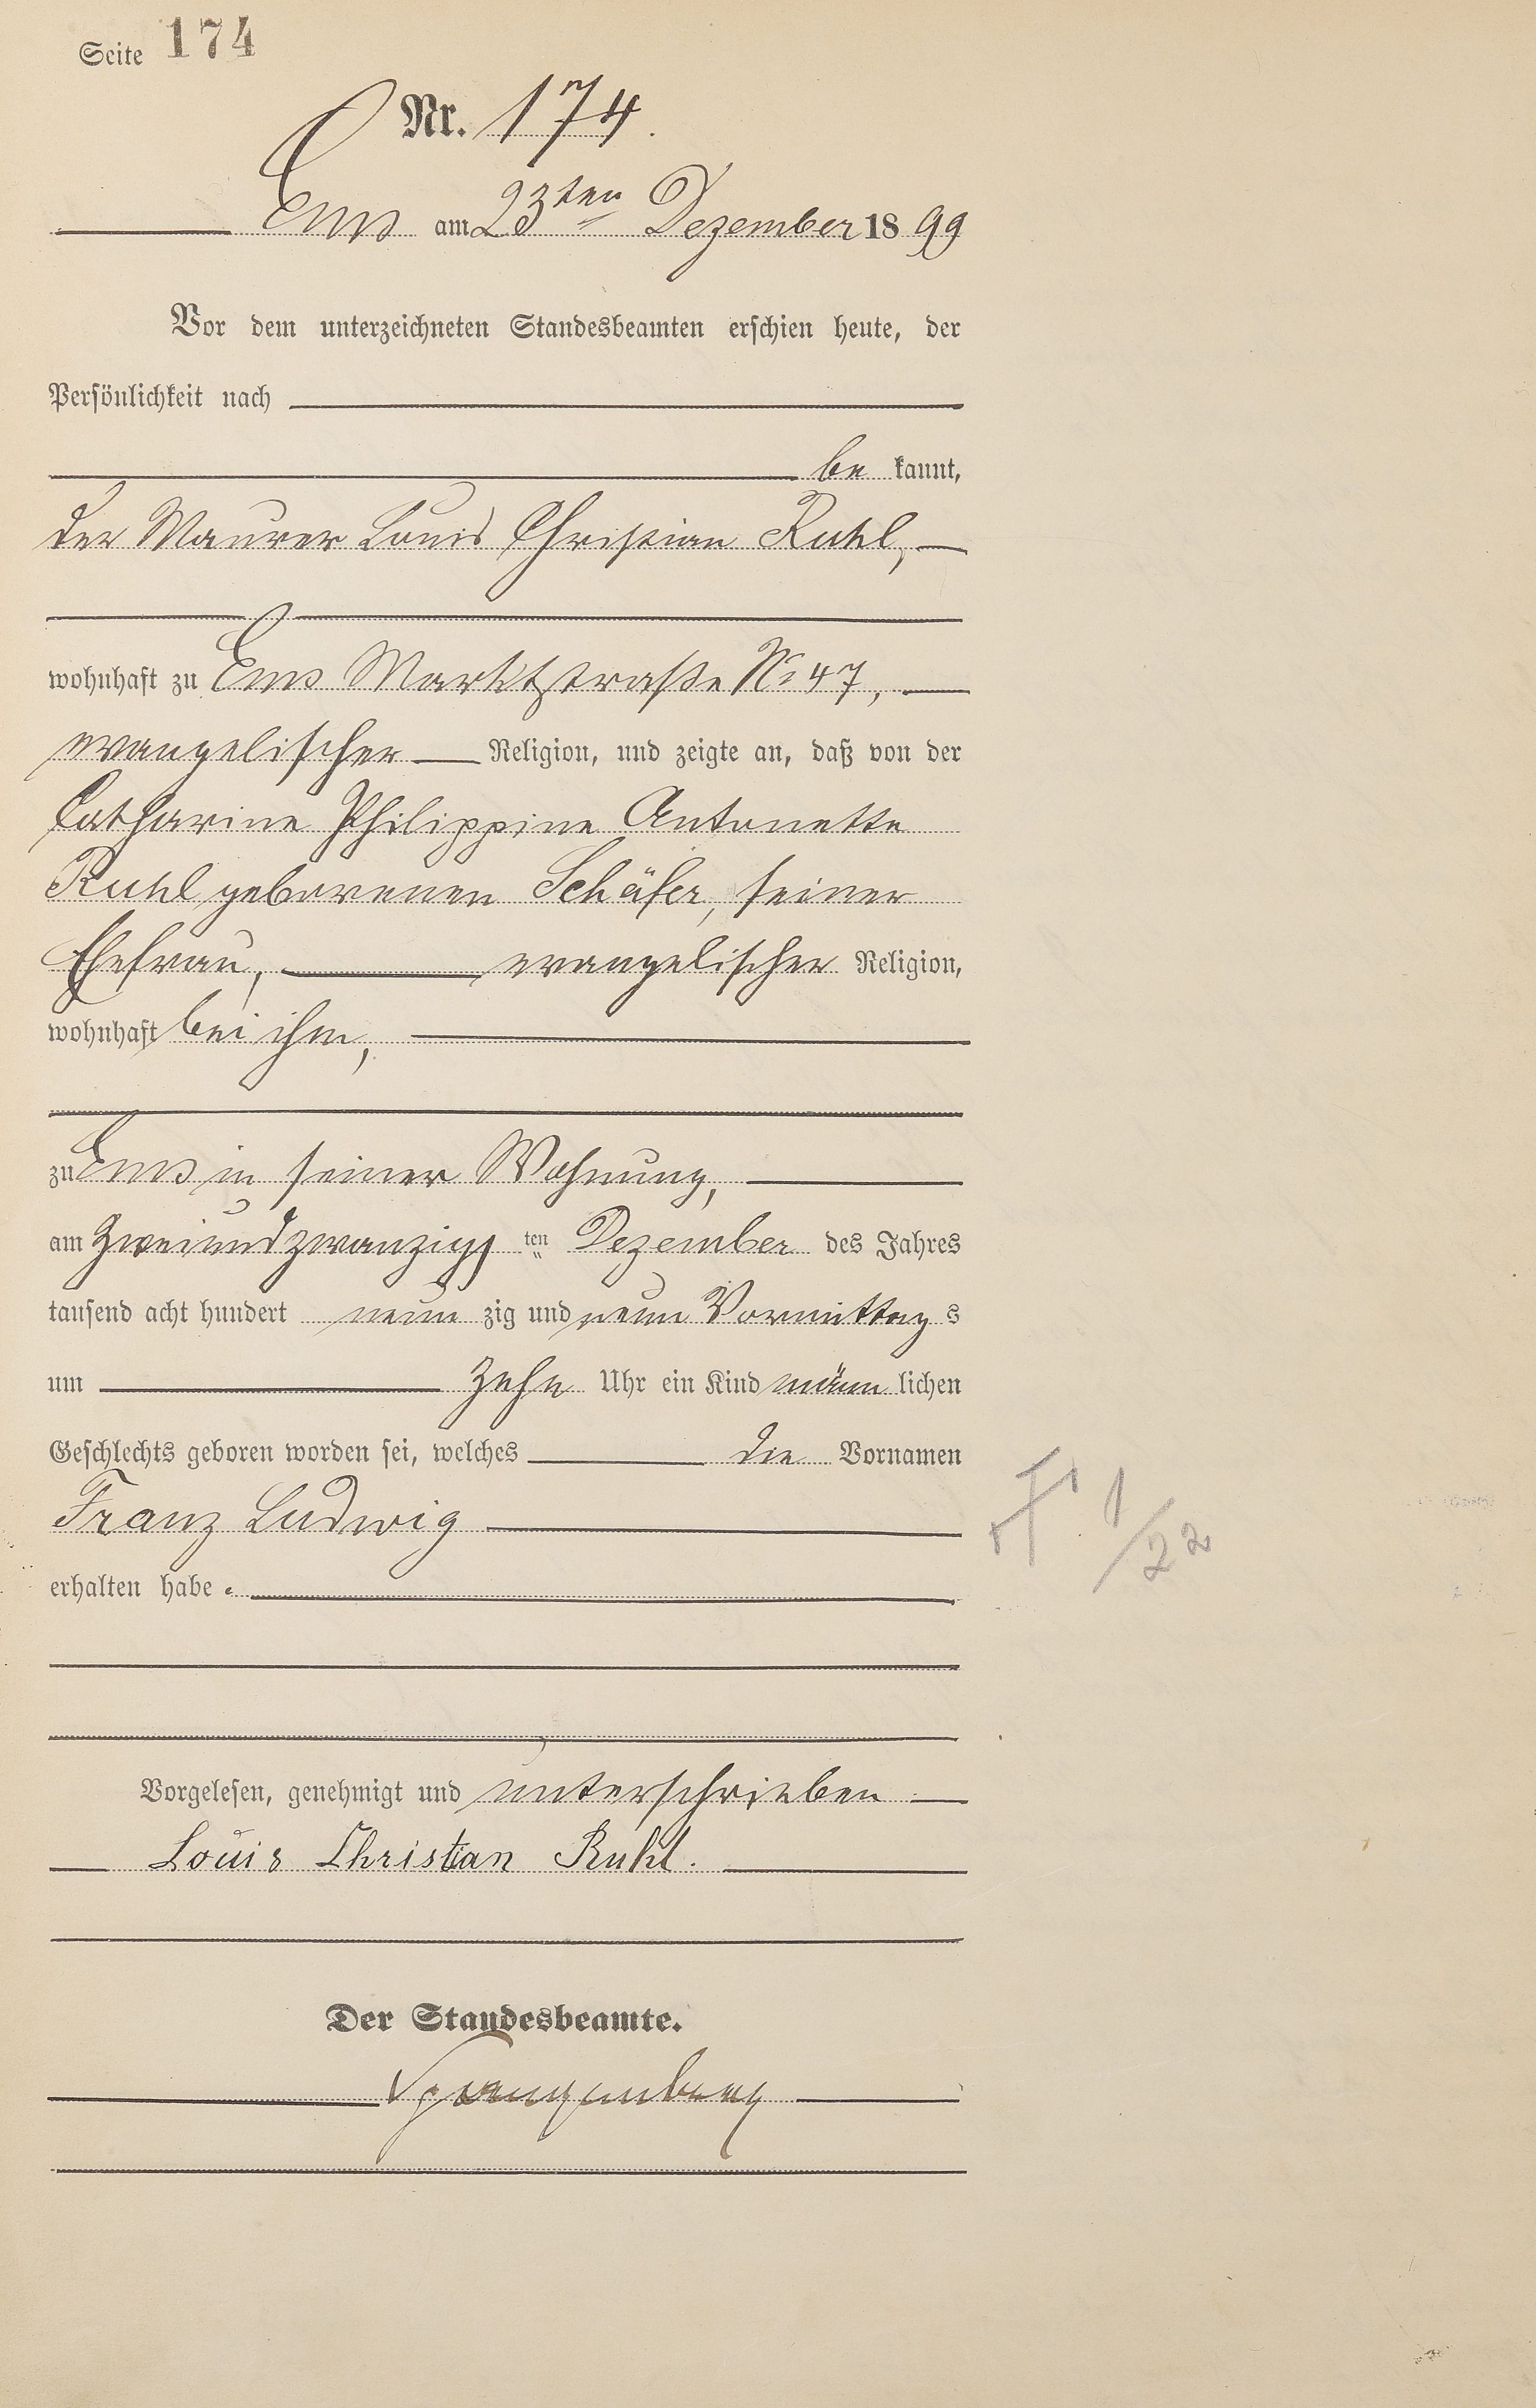 Seite 174
Nr. 174.
Ems am 23ten Dezember 1899
Vor dem unterzeichneten Standesbeamten erschien heute, der
Persönlichkeit nach
be kannt,
der Maurer Louis Christian Ruhl,
wohnhaft zu Ems Marktstraße No 47,
evangelischer Religion, und zeigte an, daß von der
Catharine Philippine Antonette
Ruhl geborenen Schäfer, seiner
Ehefrau, evangelischer Religion,
wohnhaft bei ihm,
zu Ems in seiner Wohnung,
am zweiundzwanzigsten Dezember des Jahres
tausend acht hundert neun zig und neun Vormittags
um zehn Uhr ein Kind männlichen
Geschlechts geboren worden sei, welches die Vornamen
Franz Ludwig
erhalten habe.
Vorgelesen, genehmigt und unterschrieben
Louis Christian Ruhl.
Der Standesbeamte.
Spangenberg